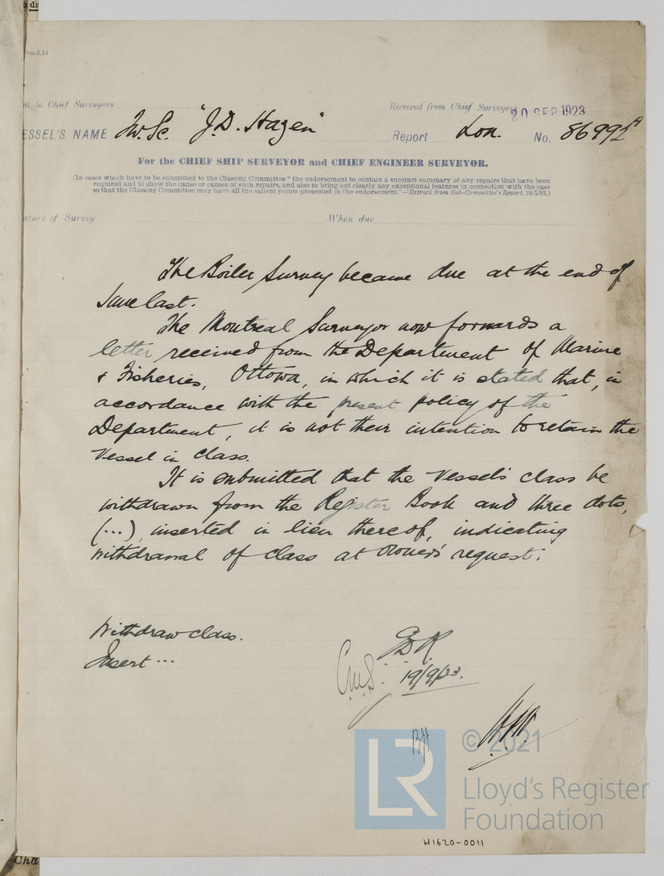 to Chief Surveyors
Received from Chief Surveyors
20 SEP 1923
ESSEL'S NAME Tw. Sc. "J.D. Hazen" Report Lon. No. 86992A
For the CHIEF SHIP SURVEYOR and CHIEF ENGINEER SURVEYOR.
(In cases which have to be submitted to the Classing Committee "the endorsement to contain a succinct summary of any repairs that have been
required and to show the cause or causes of such repairs, and also to bring out clearly any exceptional features in connection with the case
so that the Classing Committee may have all the salient points presented in the endorsement."—Extract from Sub-Committee's Report,
ature of Survey When due
The Boiler Survey became due at the end of
June last.
The Montreal Surveyor now forwards a
letter received from the Department of Marine
& Fisheries, Ottawa, in which it is stated that, in
accordance with the present policy of the
Department, it is not their intention to retain the
Vessel in class.
It is submitted that the Vessel's class be
withdrawn from the Register Book and three dots,
(...) inserted in lieu thereof, indicating
withdrawal of class at Owner's request.
Withdraw class.
Insert ...
19/9/23.
© 2021
LR
Lloyd's Register
Foundation
W1620-0011